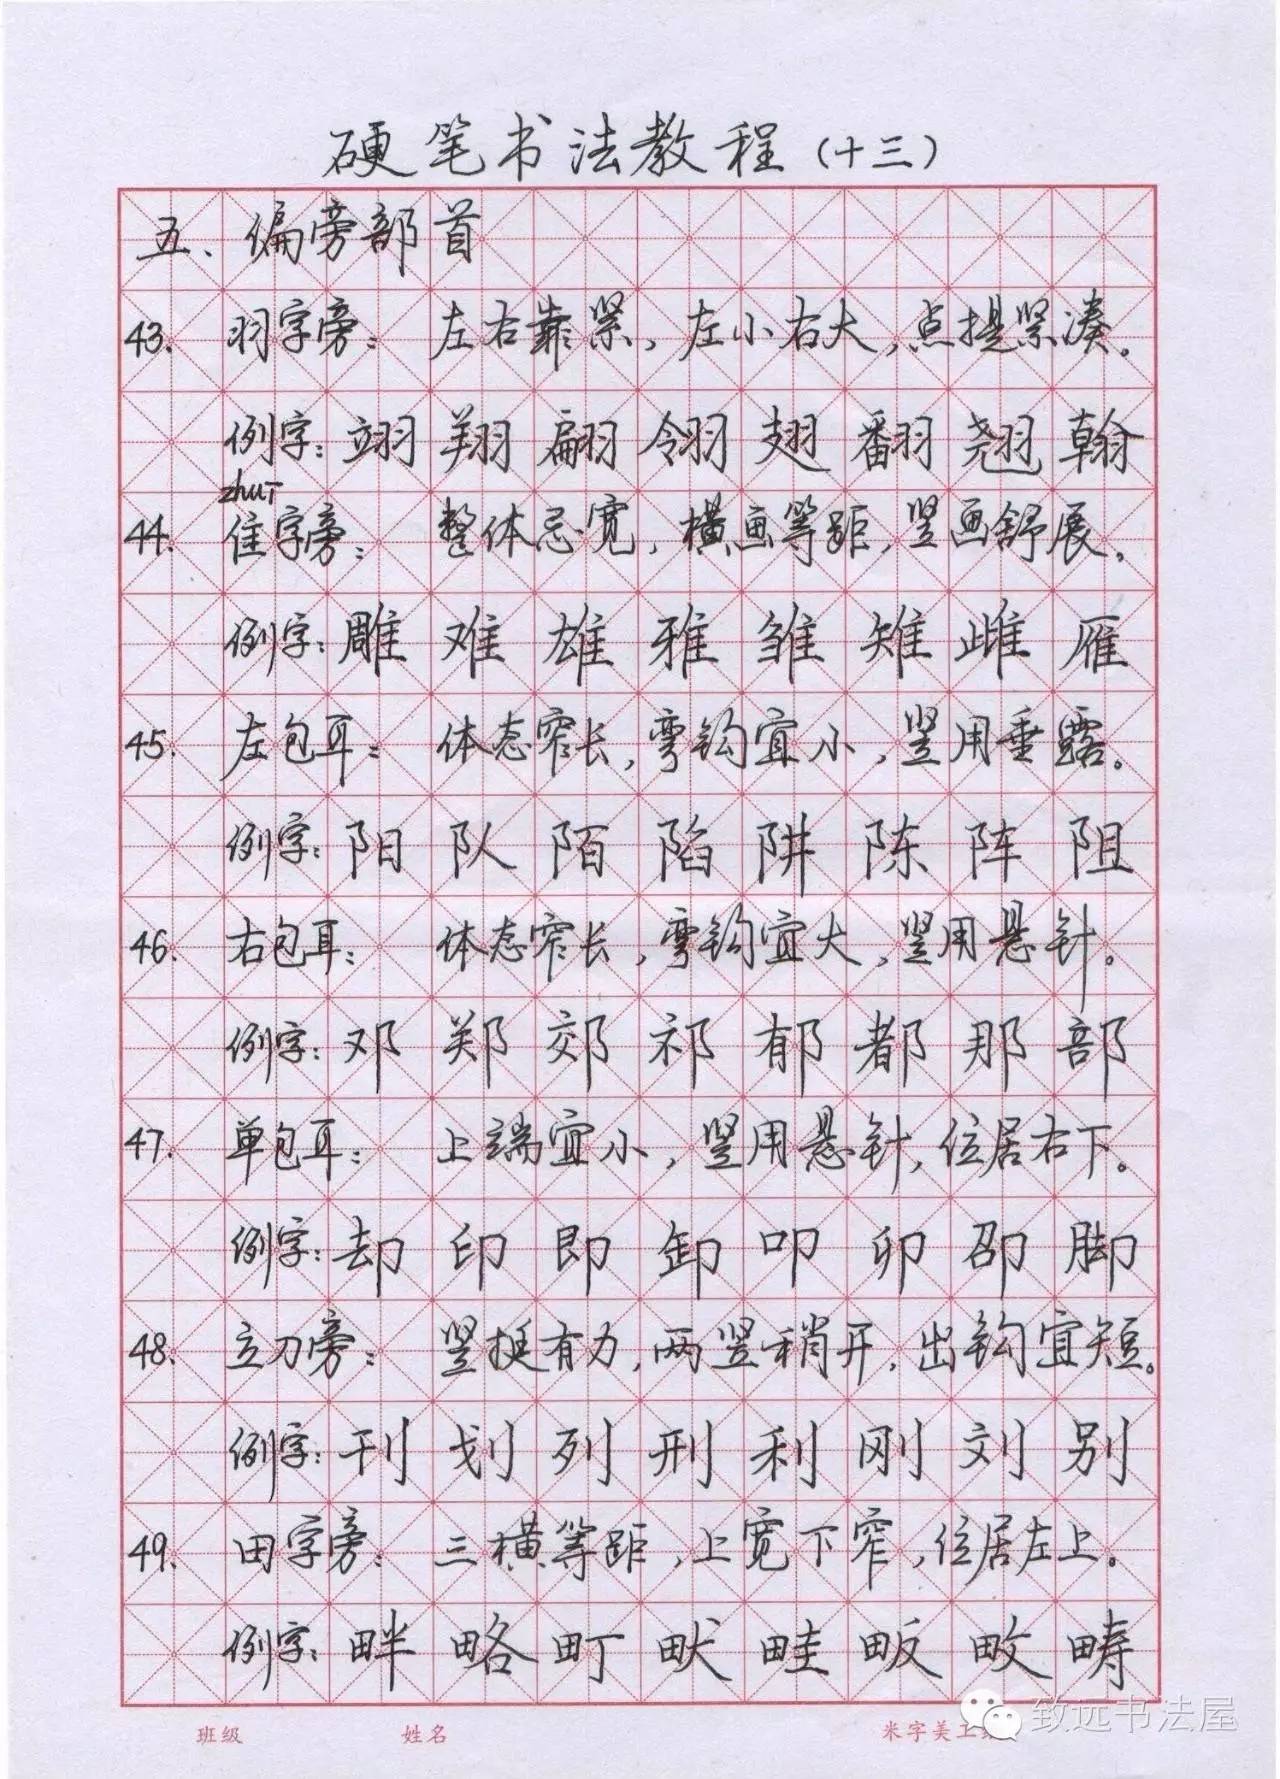 硬笔书法教程(十三)
五、偏旁部首
43. 羽字旁: 左右靠紧,左小右大,点提紧凑。
例字:翊 翔 翩 翎 翅 翻 翘 翰
zhuī
44. 隹字旁: 整体忌宽,横画等距,竖画舒展。
例字:雕 难 雄 雅 雏 雉 雌 雁
45. 左包耳: 体态窄长,弯钩宜小,竖用垂露。
例字:阳 队 陌 陷 阱 陈 阵 阻
46. 右包耳: 体态窄长,弯钩宜大,竖用悬针。
例字:邓 郑 郊 祁 郁 都 那 部
47. 单包耳: 上端宜小,竖用悬针,位居右下。
例字:却 印 即 卸 叩 卯 卲 脚
48. 立刀旁: 竖挺有力,两竖稍开,出钩宜短。
例字:刊 划 列 刑 利 刚 刘 别
49. 田字旁: 三横等距,上宽下窄,位居左上。
例字:畔 略 町 畎 畦 畈 畋 畴
班级 姓名 米字美工
致远书法屋